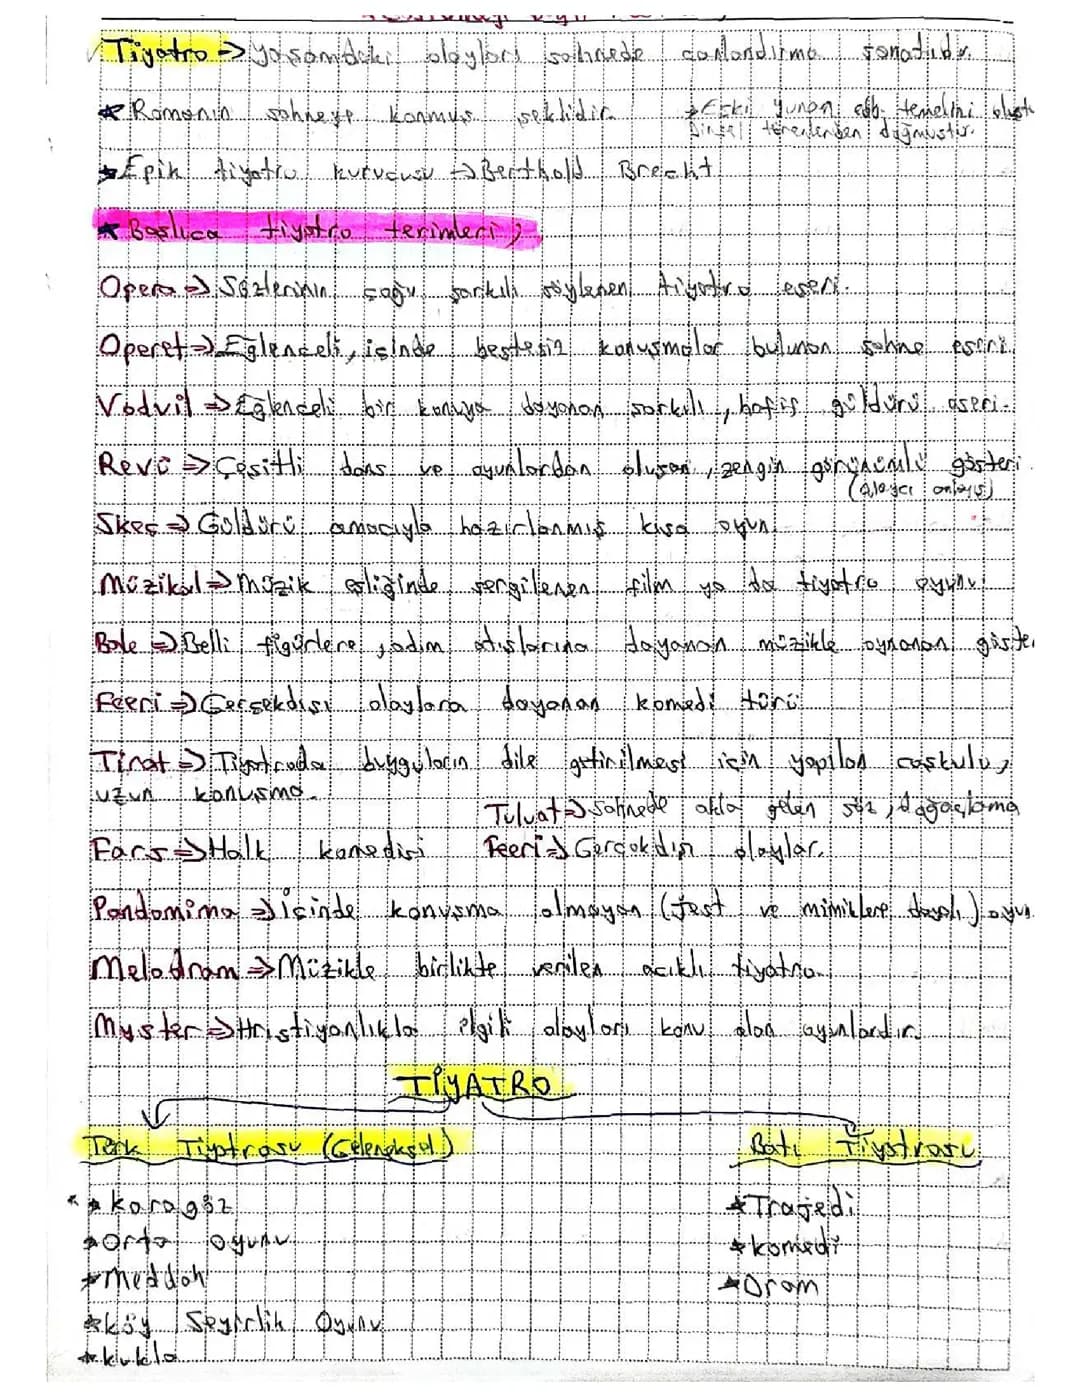 Tiyatro → yaşamdaki olayları sahnede canlandırma sanatıdır.
* Romanın sahneye konmuş şeklidir.
* Eski yunan edb. temelini oluşt
Dinsel törenlerden doğmuştur.
* Epik tiyatro kurucusu → Berthold Brecht
* Başlıca tiyatro terimleri ;
Opera ⇒ Sözlerinin çoğu şarkılı söylenen tiyatro eseri.
Operet ⇒ Eğlenceli, içinde bestesiz konuşmalar bulunan sahne eseri.
Vodvil ⇒ Eğlenceli bir konuya dayanan şarkılı, hafif güldürü eseri.
Revü ⇒ Çeşitli dans ve oyunlardan oluşan, zengin görünümlü gösteri
(alaycı anlayış)
Skeç ⇒ Güldürü amacıyla hazırlanmış kısa oyun.
Müzikal ⇒ müzik eşliğinde sergilenen film ya da tiyatro oyunu.
Bale ⇒ Belli figürlere, adım atışlarına dayanan müzikle oynanan göste
Feeri ⇒ Gerçekdışı olaylara dayanan komedi türü
Tirat ⇒ Tiyatroda duyguların dile getirilmesi için yapılan coşkulu,
uzun konuşma.
Tuluat ⇒ sahnede akla gelen söz, doğaçlama
Fars ⇒ Halk komedisi
Feeri ⇒ Gerçekdışı olaylar.
Pandomima ⇒ içinde konuşma olmayan (jest ve mimiklere dayalı) oyun
Melodram ⇒ Müzikle birlikte verilen acıklı tiyatro.
Myster ⇒ Hristiyanlıkla ilgili olayları konu alan oyunlardır.
TİYATRO
Türk Tiyatrosu (Geleneksel)
Batı Tiyatrosu
* karagöz
* Orta oyunu
* Meddah
* köy Seyirlik Oyunu
* kukla
* Trajedi
* komedi
* Dram